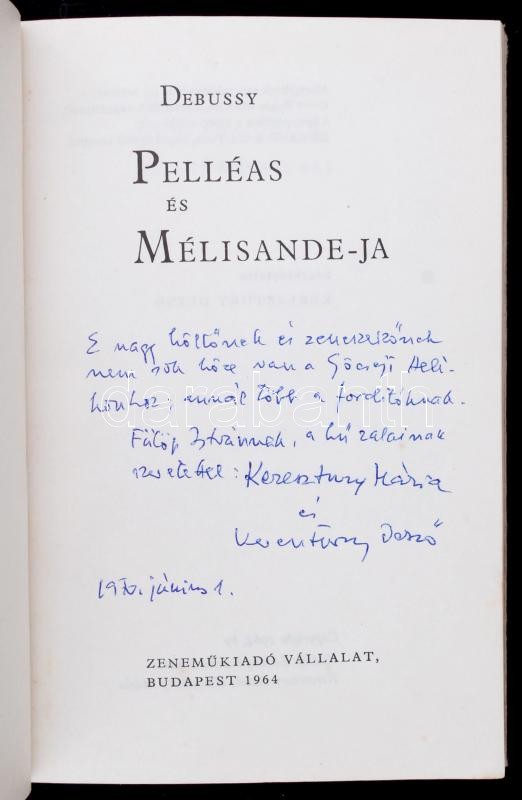 DEBUSSY
PELLÉAS
ÉS
MÉLISANDE-JA
E nagy költőnek és zeneszerzőnek
nem sok köze van a Göcseji Heli-
konhoz; annál több a fordítóknak.
Fülöp Istvánnak, a hű zalainak
szeretettel: Keresztury Mária
és
Keresztury Dezső
1970. június 1.
darabanth
ZENEMŰKIADÓ VÁLLALAT,
BUDAPEST 1964